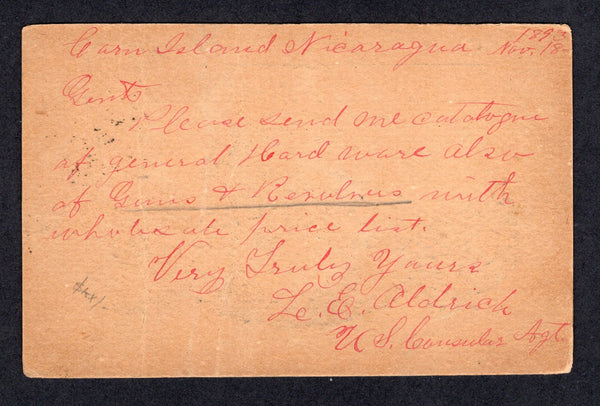 Corn Island Nicaragua 1893
Nov. 18
Gents
Please send me catalogue
of general Hard ware also
of Guns & Revolvers with
wholesale price list.
Very Truly Yours
L. E. Aldrich
U S. Consular Agt.